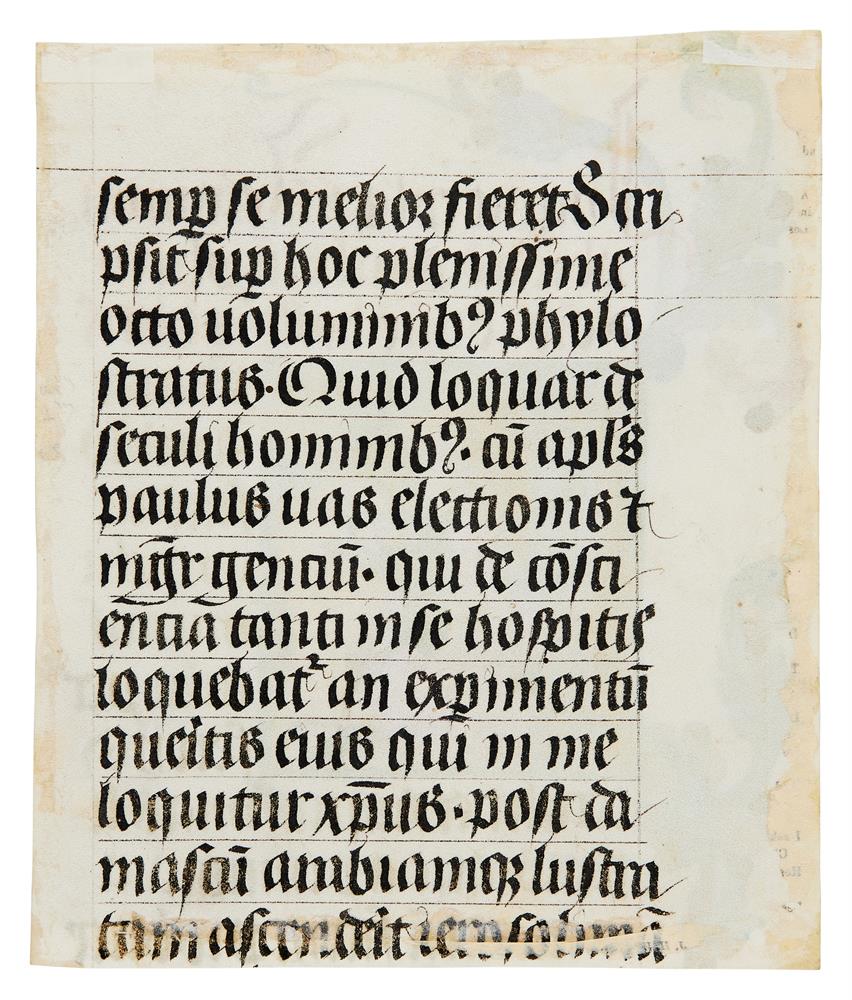 semꝑ se melior fieret Scri
psit suꝑ hoc plenissime
octo uoluminibꝰ phylo
stratus. Quid loquar de
seculi hominibꝰ. cū apl̄s
paulus uas electionis ⁊
mḡr genciū. qui de cōsci
encia tanti in se hospitis
loquebat᷑ an exꝑimentū
queritis eius qui in me
loquitur xp̄us. post da
mascū arabiamqꝫ lustra
tam ascenderit ierosolimā